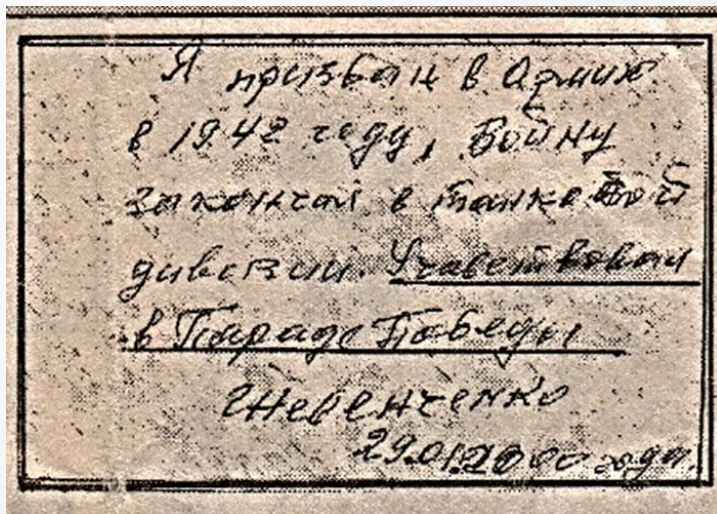 Я призван в Армию
в 1942 году, Войну
закончил в танковой
дивизии. Участвовал
в Параде Победы
29.01.2000 года.